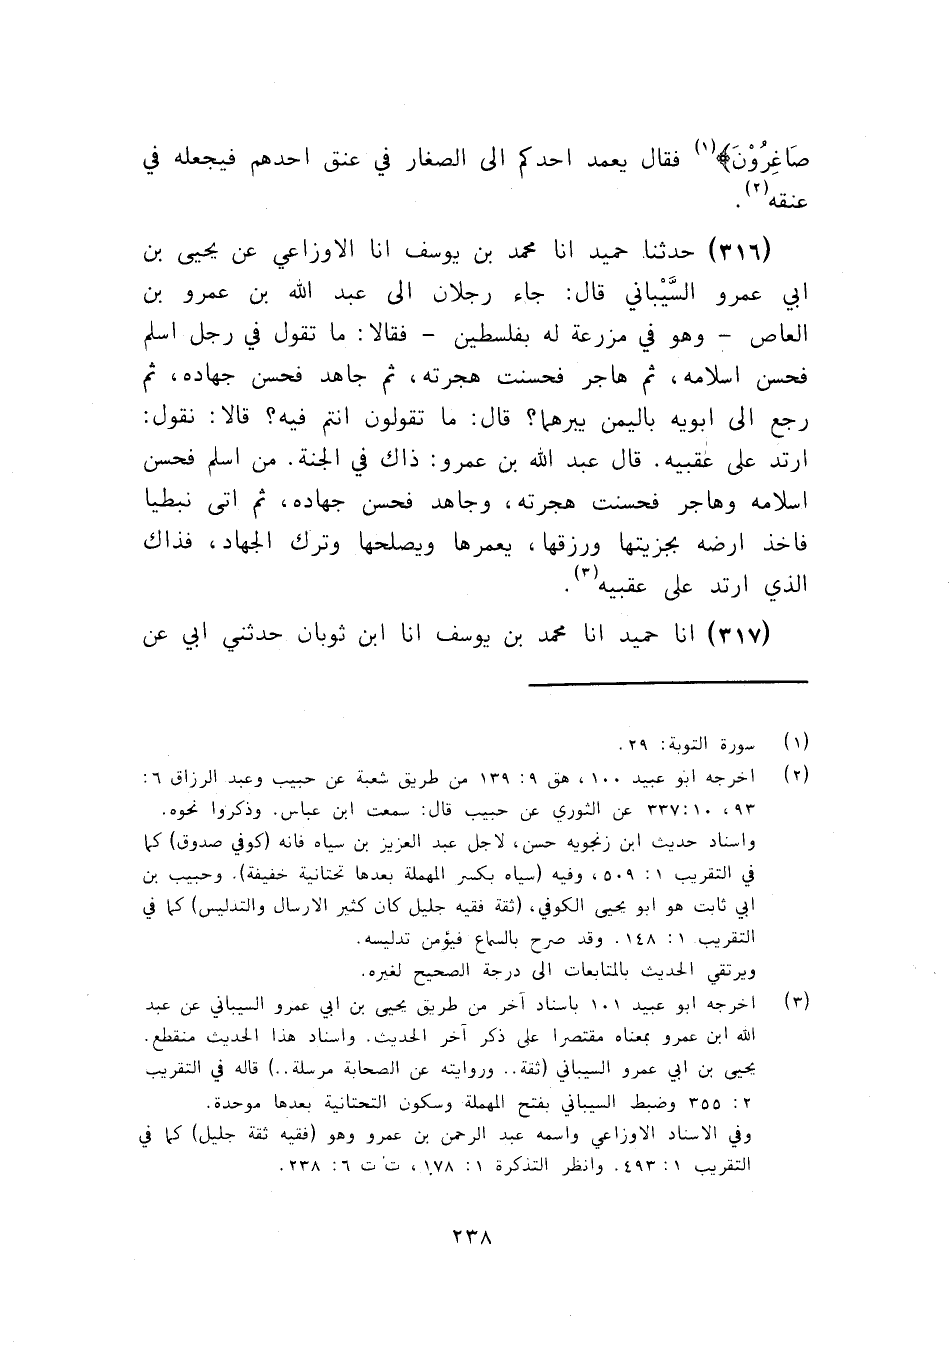 صَاغِرُوْنَ﴾(١) فقال يعمد احدكم الى الصغار في عنق احدهم فيجعله في
عنقه(٢).
(٣١٦) حدثنا حميد انا محمد بن يوسف انا الاوزاعي عن يحيى بن
ابي عمرو السَّيْباني قال: جاء رجلان الى عبد الله بن عمرو بن
العاص - وهو في مزرعة له بفلسطين - فقالا: ما تقول في رجل اسلم
فحسن اسلامه، ثم هاجر فحسنت هجرته، ثم جاهد فحسن جهاده، ثم
رجع الى ابويه باليمن يبرهما؟ قال: ما تقولون انتم فيه؟ قالا: نقول:
ارتد على عقبيه. قال عبد الله بن عمرو: ذاك في الجنة. من اسلم فحسن
اسلامه وهاجر فحسنت هجرته، وجاهد فحسن جهاده، ثم اتى نبطيا
فاخذ ارضه بجزيتها ورزقها، يعمرها ويصلحها وترك الجهاد، فذاك
الذي ارتد على عقبيه(٣).
(٣١٧) انا حميد انا محمد بن يوسف انا ابن ثوبان حدثني ابي عن
(١) سورة التوبة: ٢٩.
(٢) اخرجه ابو عبيد ١٠٠، هق ٩: ١٣٩ من طريق شعبة عن حبيب وعبد الرزاق ٦:
٩٣، ٣٣٧:١٠ عن الثوري عن حبيب قال: سمعت ابن عباس. وذكروا نحوه.
واسناد حديث ابن زنجويه حسن، لاجل عبد العزيز بن سياه فانه (كوفي صدوق) كما
في التقريب ١: ٥٠٩، وفيه (سياه بكسر المهملة بعدها تحتانية خفيفة). وحبيب بن
ابي ثابت هو ابو يحيى الكوفي، (ثقة فقيه جليل كان كثير الارسال والتدليس) كما في
التقريب ١: ١٤٨. وقد صرح بالسماع فيؤمن تدليسه.
ويرتقي الحديث بالمتابعات الى درجة الصحيح لغيره.
(٣) اخرجه ابو عبيد ١٠١ باسناد آخر من طريق يحيى بن ابي عمرو السيباني عن عبد
الله ابن عمرو بمعناه مقتصرا على ذكر آخر الحديث. واسناد هذا الحديث منقطع.
يحيى بن ابي عمرو السيباني (ثقة.. وروايته عن الصحابة مرسلة..) قاله في التقريب
٢: ٣٥٥ وضبط السيباني بفتح المهملة وسكون التحتانية بعدها موحدة.
وفي الاسناد الاوزاعي واسمه عبد الرحمن بن عمرو وهو (فقيه ثقة جليل) كما في
التقريب ١: ٤٩٣. وانظر التذكرة ١: ١٧٨، ت ت ٦: ٢٣٨.
٢٣٨